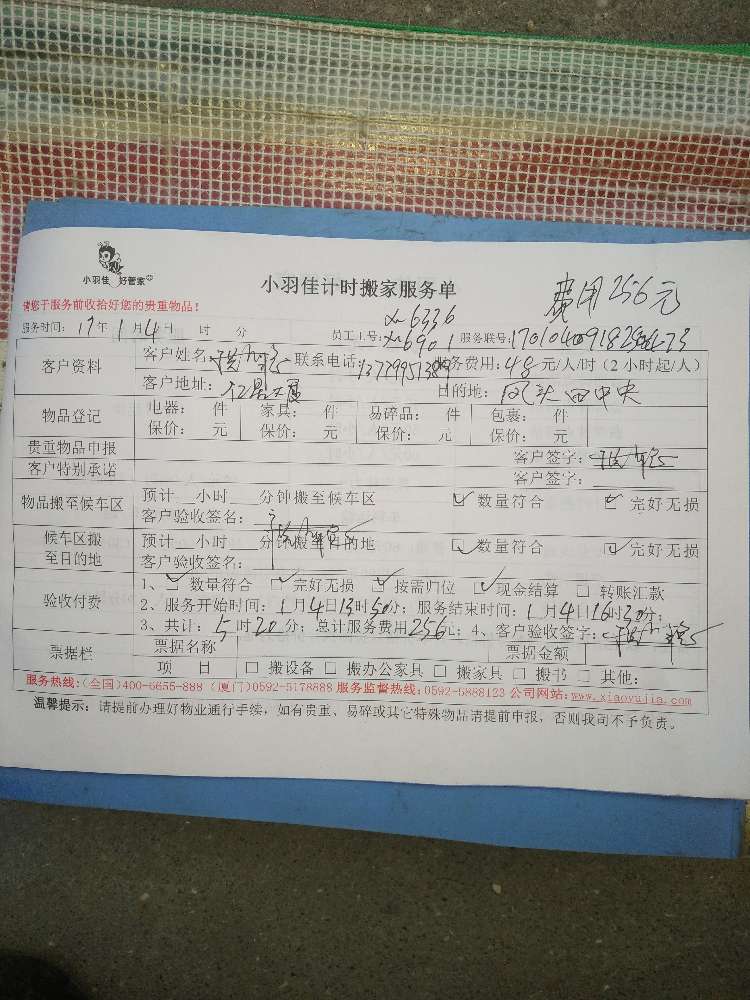 小羽佳 好管家
小羽佳计时搬家服务单
费用256元
请您于服务前收拾好您的贵重物品!
服务时间: 17年 1月4日 时 分 员工工号: 6336
6901 服务联号:
客户资料 客户姓名: 联系电话: 服务费用: 48 元/人/时 (2 小时起/人)
客户地址: 大厦 目的地:
物品登记 电器: 件 家具: 件 易碎品: 件 包裹: 件
保价: 元 保价: 元 保价: 元 保价: 元
贵重物品申报 客户签字:
客户特别承诺 客户签字:
物品搬至候车区 预计__小时__分钟搬至候车区 ☑ 数量符合 ☑ 完好无损
客户验收签名:
候车区搬至目的地 预计__小时__分钟搬至目的地 ☑ 数量符合 ☑ 完好无损
客户验收签名:
验收付费 1、☑ 数量符合 ☑ 完好无损 ☑ 按需归位 ☑ 现金结算 □ 转账汇款
2、服务开始时间: 1月4日13时50分; 服务结束时间: 1月4日16时30分;
3、共计: 5时20分; 总计服务费用256元; 4、客户验收签字:
票据栏 票据名称 票据金额
项 目 □ 搬设备 □ 搬办公家具 □ 搬家具 □ 搬书 □ 其他:
服务热线:(全国)400-6655-888 (厦门)0592-5178888 服务监督热线:0592-5888123 公司网站:www.xiaoyujia.com
温馨提示: 请提前办理好物业通行手续, 如有贵重、易碎或其它特殊物品请提前申报, 否则我司不予负责。